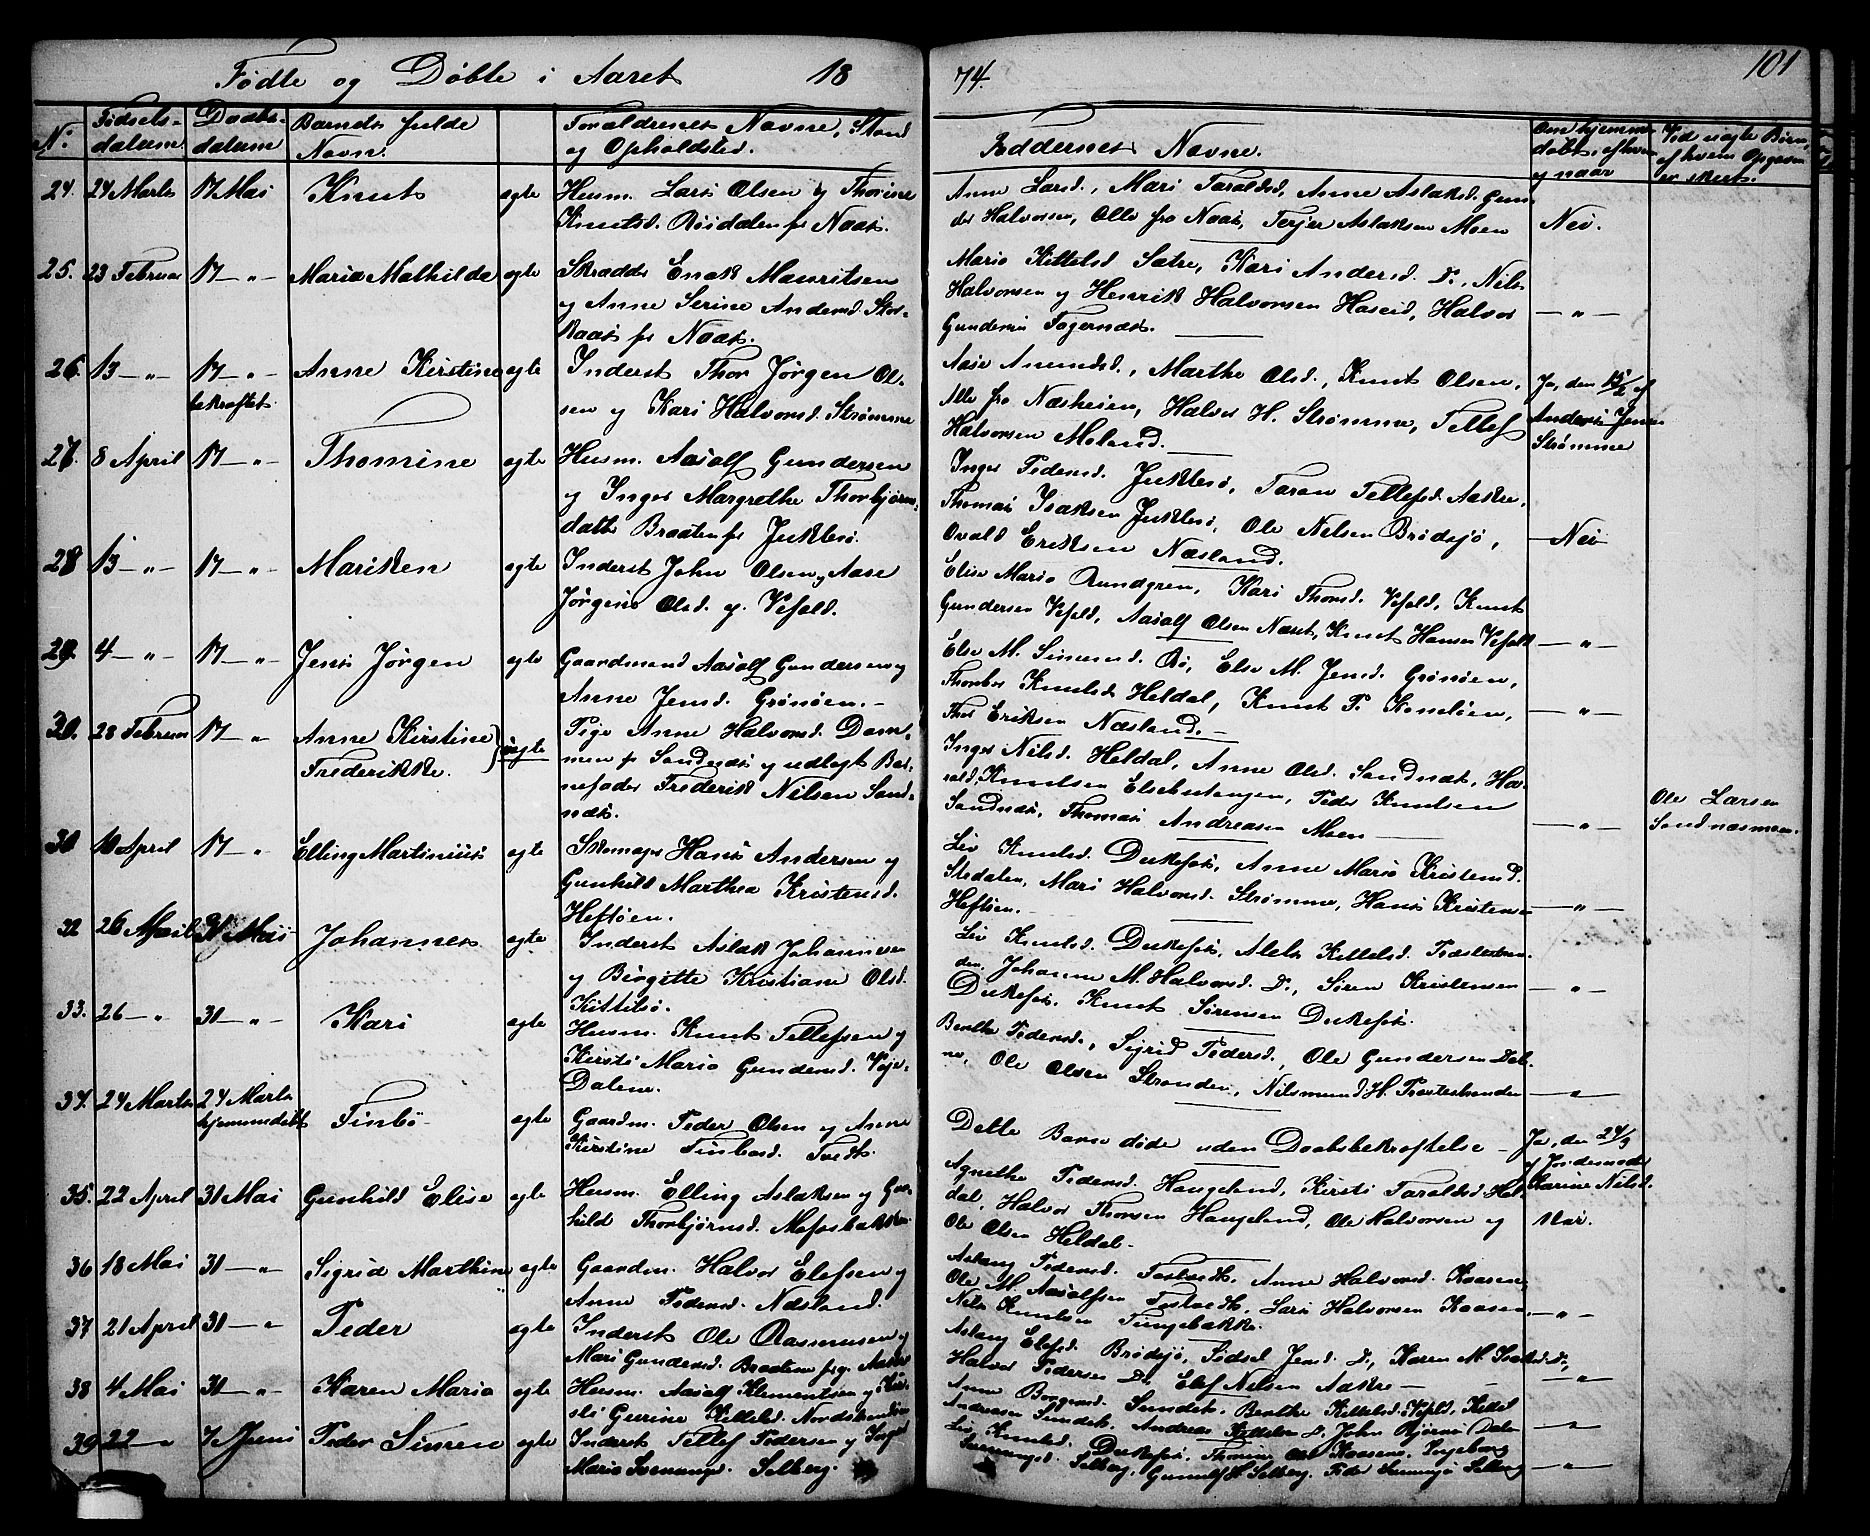 Fødte og Døbte i Aaret 18
74. 101
No. Fødsels- Daabs- Barnets fulde Forældrenes Navne, Stand
datum datum Navn. og Opholdsted.
Faddernes Navne. Om hjemme- Ved uægte Børn,
døbt, af hvem af hvem Opgaven
og naar er skeet.
24. 24 Marts 17 Mai Knut ægte Husm. Lars Olsen og Thorine
Knutsd. Røidalen fr Naas.
Anne Larsd., Mari Taraldsd., Anne Aslaksd. Gun-
der Halvorsen, Alle fra Naas, Terjer Aslaksen Moen Nei.
25. 23 Februar 17 — " — Maria Mathilde ægte Skrædder Enok Mauritsen
og Anne Serine Andersd. Stor-
kaas fr Naas.
Maria Kittelsd Sætre, Kari Andersd. D., Nils
Halvorsen og Henrik Halvorsen Haseid, Halvor
Gundersen Fagernæs. — " —
26. 13 — " — 17 — " — Anne Kirstine ægte Inderst Thor Jørgen Ol-
bekræftet sen og Kari Halvorsd. Strømme
Aase Amundsd., Marthe Olsd., Knut Olsen,
Alle fra Næsheien, Halvor H. Strømme, Tellef
Halvorsen Moland.
Ja, den 15/2 af
Anders Jensen
Strømme
27. 8 April 17 — " — Thomine ægte Husm. Aasolf Gundersen
og Inger Margrethe Thorbjørns-
datter Braaten fr Juklerø.
Inger Pedersd. Juklerø, Taran Tellefsd. Aakre,
Thomas Isaksen Juklerø, Ole Nilsen Brødsjø,
Ovald Eriksen Næsland. — Nei —
28 13 — " — 17 — " — Mariken ægte Inderst John Olsen og Aase
Jørgine Olsd. og Vefald.
Elise Maria Rundgren, Kari Thorsd. Vefald, Knut
Gundersen Vefald, Aasolf Olsen Næset, Knut Hansen Vefald — " —
29. 4 — " — 17 — " — Jens Jørgen ægte Gaardmand Aasolf Gundersen og
Anne Jensd. Grønøen. —
Else M. Simensd. Bø, Else M. Jensd. Grønøen,
Thorbor Knutsd. Heldal, Knut P. Komløen,
Thor Eriksen Næsland. — — " —
30. 28 Februar 17 — " Anne Kirstine uægte Pige Anne Halvorsd. Dam-
Frederikke. men fr Sandnæs og udlagt Bar-
nefader Frederik Nilsen Sand-
næs.
Inger Nilsd. Heldal, Anne Olsd. Sandnæs, Ha-
rald Knutsen Elsebutangen, Peder Knutsen
Sandnæs, Thomas Andreasen Moen — — " —
Ole Larsen
Sandnæsmoen.
31 10 April 17 — " Elling Martinius ægte Skomager Hans Andersen og
Gunhild Marthea Kristensd.
Heftøen.
Liv Knutsd. Dukefos, Anne Maria Kristensd.
Stedalen, Mari Halvorsd. Strømme, Hans Kristensen
Heftøen. — — " —
32 26 April 31 Mai Johannes ægte Inderst Aslak Johannesen
og Birgitte Kristiane Olsd.
Kittilsø.
Liv Knutsd. Dukefos, Alet Kittelsd. Præstestran-
den, Johanne M. Halvorsd. D., Søren Kristensen
Dukefos, Knut Sørensen Dukefos. — " —
33. 26 — " 31 — " — Kari ægte Husm. Knut Tellefsen og
Kirsti Maria Gundersd. Veje-
Dalene.
Berthe Pedersd., Sigrid Pedersd., Ole Gundersen Dal-
ne, Ole Olsen Stranden, Nilsmund H. Præstestranden — " —
34. 24 Marts 24 Marts Tinbø ægte Gaardm. Peder Olsen og Anne
hjemmedøbt Kirstine Tinbosd. Tvedt.
Dette Barn døde uden Daabsbekræftelse — Ja, den 24/3
af Jordemoder
Karine Nilsd.
35. 22 April 31 Mai Gunhild Elise ægte Husm. Elling Aslaksen og Gun-
hild Thorbjørnsd. Mosebakken.
Agnethe Pedersd. Haugeland, Kirsti Taraldsd. Hel-
dal, Halvor Thorsen Haugeland, Ole Halvorsen og
Ole Olsen Heldal. Nei.
36 18 Mai 31 — " — Sigrid Marthine ægte Gaardm. Halvor Elefsen og
Anne Pedersd. Næsland.
Aslaug Pedersd. Fostvedt, Anne Halvorsd. Kaasen,
Ole M. Aasolfsen Fostvedt, Lars Halvorsen Kaasen,
Nils Knutsen Tungebakke. — " —
37 21 April 31 — " Peder ægte Inderst Ole Rasmussen og
Mari Gundersd. Braaten fr Aakre
Aslaug Elefsd. Brødsjø, Sidsel Jensd. D., Karen M. Isaksd. D.,
Halvor Pedersen D., Elef Nilsen Aakre — — " —
38 4 Mai 31 — " — Karen Maria ægte Husm. Aasolf Klementsen og Kir-
sti Gurine Kittelsd. Nordstranden
Anne Boggesd. Sundet, Berthe Kittelsd. Vefald, Kittel
Andreasen Sundet, Andreas Kittelsen D., John Bjørnis Dalen — " —
39 22 — " 7 Juni Peder Simen ægte Inderst Tellef Pedersen og Inger
Maria Svennungsd. Solberg.
Liv Knutsd. Dukefos, Thomine Olsd. Kaasene, Ingeborg
Svennungsd. Solberg, Gunulf H. Solberg, Peder Svennungs. Solberg — " —